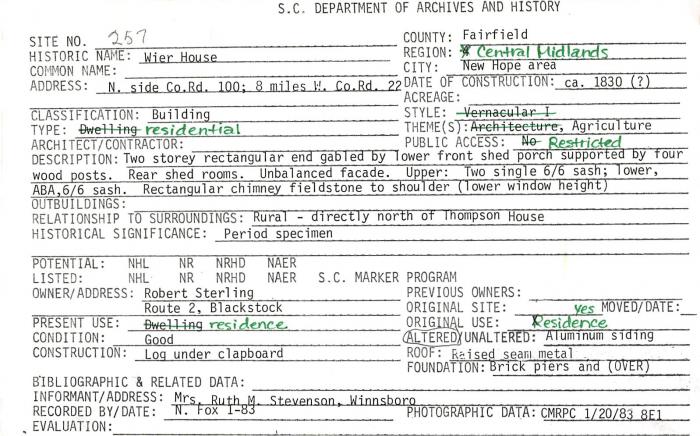 S.C. DEPARTMENT OF ARCHIVES AND HISTORY
SITE NO. 257
COUNTY: Fairfield
HISTORIC NAME: Wier House
REGION: Central Midlands
COMMON NAME:
CITY: New Hope area
ADDRESS: N. side Co.Rd. 100; 8 miles W. Co.Rd. 22
DATE OF CONSTRUCTION: ca. 1830 (?)
ACREAGE:
CLASSIFICATION: Building
STYLE: Vernacular I
TYPE: Dwelling residential
THEME(S): Architecture, Agriculture
ARCHITECT/CONTRACTOR:
PUBLIC ACCESS: No Restricted
DESCRIPTION: Two storey rectangular end gabled by lower front shed porch supported by four
wood posts. Rear shed rooms. Unbalanced facade. Upper: Two single 6/6 sash; lower,
ABA,6/6 sash. Rectangular chimney fieldstone to shoulder (lower window height)
OUTBUILDINGS:
RELATIONSHIP TO SURROUNDINGS: Rural - directly north of Thompson House
HISTORICAL SIGNIFICANCE: Period specimen
POTENTIAL: NHL NR NRHD NAER
LISTED: NHL NR NRHD NAER S.C. MARKER PROGRAM
OWNER/ADDRESS: Robert Sterling
PREVIOUS OWNERS:
Route 2, Blackstock
ORIGINAL SITE: yes MOVED/DATE:
PRESENT USE: Dwelling residence
ORIGINAL USE: Residence
CONDITION: Good
ALTERED/UNALTERED: Aluminum siding
CONSTRUCTION: Log under clapboard
ROOF: Raised seam metal
FOUNDATION: Brick piers and (OVER)
BIBLIOGRAPHIC & RELATED DATA:
INFORMANT/ADDRESS: Mrs. Ruth M. Stevenson, Winnsboro
RECORDED BY/DATE: N. Fox 1-83
PHOTOGRAPHIC DATA: CMRPC 1/20/83 8E1
EVALUATION: